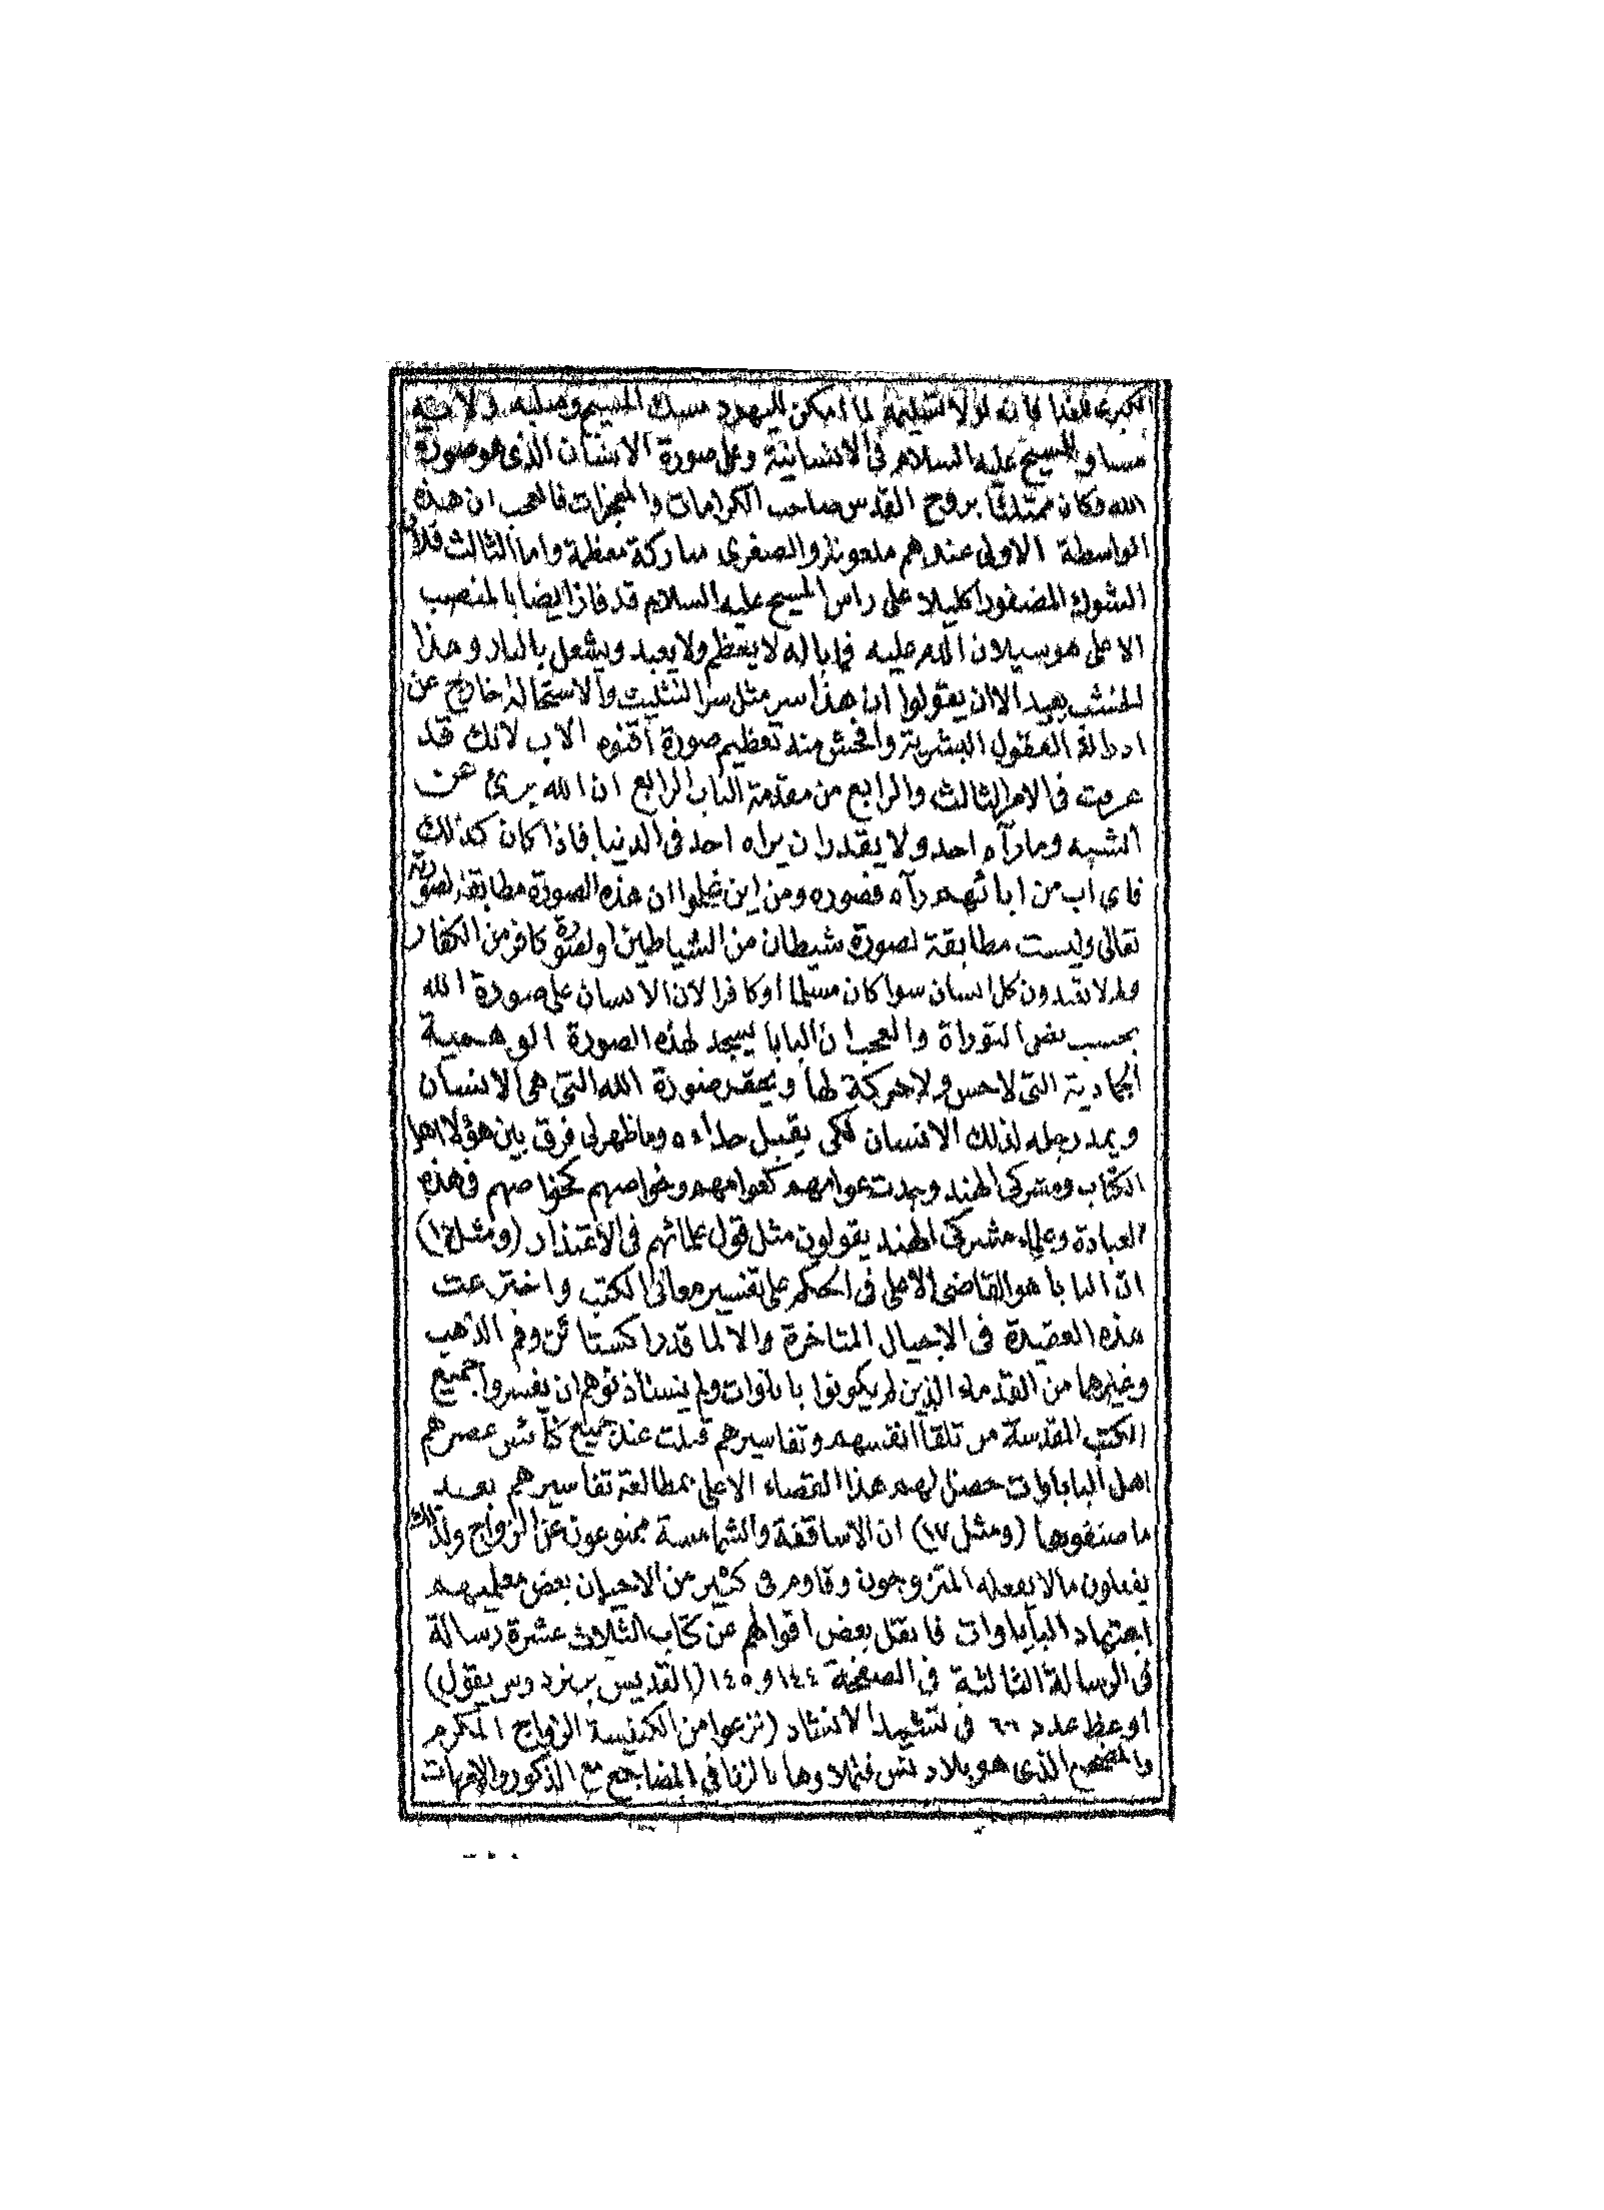 الكبرى للفدا فانه لولا تسليمه لما امكن لليهود مسك المسيح وصلبه ولانه
مساو للمسيح عليه السلام في الانسانية وعلى صورة الانسان الذى هو صورة
الله وكان ممتلئا بروح القدس صاحب الكرامات والمعجزات فالعجب ان هذه
الواسطة الاولى عندهم ملعونة والصغرى مباركة معظمة واما الثالث فلان
الشوك المضفور اكليلا على راس المسيح عليه السلام قد فاز ايضا بالمنصب
الاعلى هو سيلان الدم عليه فما باله لا يعظم ولا يعبد ويشعل بالنار وهذا
الخشب يعبد الا ان يقولوا ان هذا سر مثل سر التثليث والاستحالة خارج عن
ادراك العقول البشرية وافحش منه تعظيم صورة اقنوم الاب لانك قد
عرفت في الامر الثالث والرابع من مقدمة الباب الرابع ان الله برئ عن
الشبه وما رآه احد ولا يقدر ان يراه احد فى الدنيا فاذا كان كذلك
فاى اب من ابائهم رآه فصوره ومن اين علموا ان هذه الصورة مطابقة لصورته
تعالى وليست مطابقة لصورة شيطان من الشياطين او لصورة كافر من الكفار
ولم لا يعبدون كل انسان سوا كان مسلما او كافرا لان الانسان على صورة الله
بحسب نص التوراة والعجب ان البابا يسجد لهذه الصورة الوهمية
الجمادية التى لا حس ولا حركة لها ويحقر صورة الله التى هى الانسان
ويمد رجله لذلك الانسان لكى يقبل حذاءه وما ظهر لى فرق بين هؤلا اهل
الكتاب ومشركى الهند وجدت عوامهم كعوامهم وخواصهم كخواصهم في هذه
العبادة وعلماء مشركى الهند يقولون مثل قول علمائهم فى الاعتذار (ومثل ١٦)
ان البابا هو القاضى الاعلى فى الحكم على تفسير معانى الكتب واخترعت
هذه العقيدة فى الاجيال المتاخرة والا لما قدر اكستائن وفم الذهب
وغيرهما من القدماء الذين لم يكونوا باباوات ولم يستاذنوهم ان يفسروا جميع
الكتب المقدسة من تلقا انفسهم وتفاسيرهم قبلت عند جميع كنائس عصرهم
لعل الباباوات حصل لهم هذا القضاء الاعلى بمطالعة تفاسيرهم بعد
ما صنفوها (ومثل ١٧) ان الاساقفة والشمامسة ممنوعون عن الزواج ولذلك
يفعلون ما لا يفعله المتزوجون وقاوم فى كثير من الاحيان بعض معلميهم
اجتهاد الباباوات فانقل بعض اقوالهم عن كتاب الثلاث عشرة رسالة
فى الرسالة الثالثة فى الصفحة ١٤٤ و١٤٥ (القديس برنردوس يقول)
او عظ عدد ٦٦ فى نشيد الانشاد (نزعوا من الكنيسة الزواج المكرم
والمضجع الذى هو بلا دنس فملاوها بالزنا فى المضاجع مع الذكور والامهات